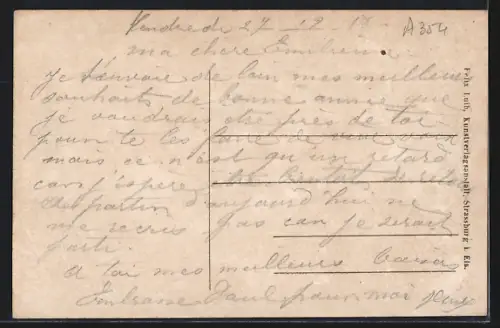 Vendredi 27 - 12 - 18
A 354
ma chere Emilienne
Je t'envoie de loin mes meilleurs
souhaits de bonne année que
je voudrais été près de toi
pour te les faire de vive voix
mais ce n'est qu'un retard
car j'espère être bientôt de retour
partir d'aujourd'hui ne
me pas car je serai
parti.
a toi mes meilleurs baisers
Embrasse Paul pour moi
Felix Luib, Kunstverlagsanstalt, Strassburg i. Els.